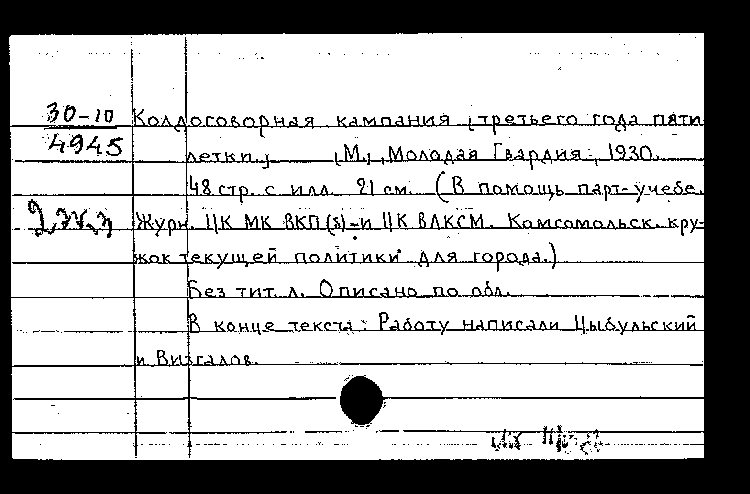 30-10
4945
2 экз
Колдоговорная кампания третьего года пяти
летки. М., "Молодая Гвардия", 1930.
48 стр. с илл. 21 см. (В помощь парт-учебе.
Журн. ЦК МК ВКП(б) и ЦК ВЛКСМ. Комсомольск. кру-
жок текущей политики для города.)
Без тит. л. Описано по обл.
В конце текста: Работу написали Цыбульский
и Визгалов.